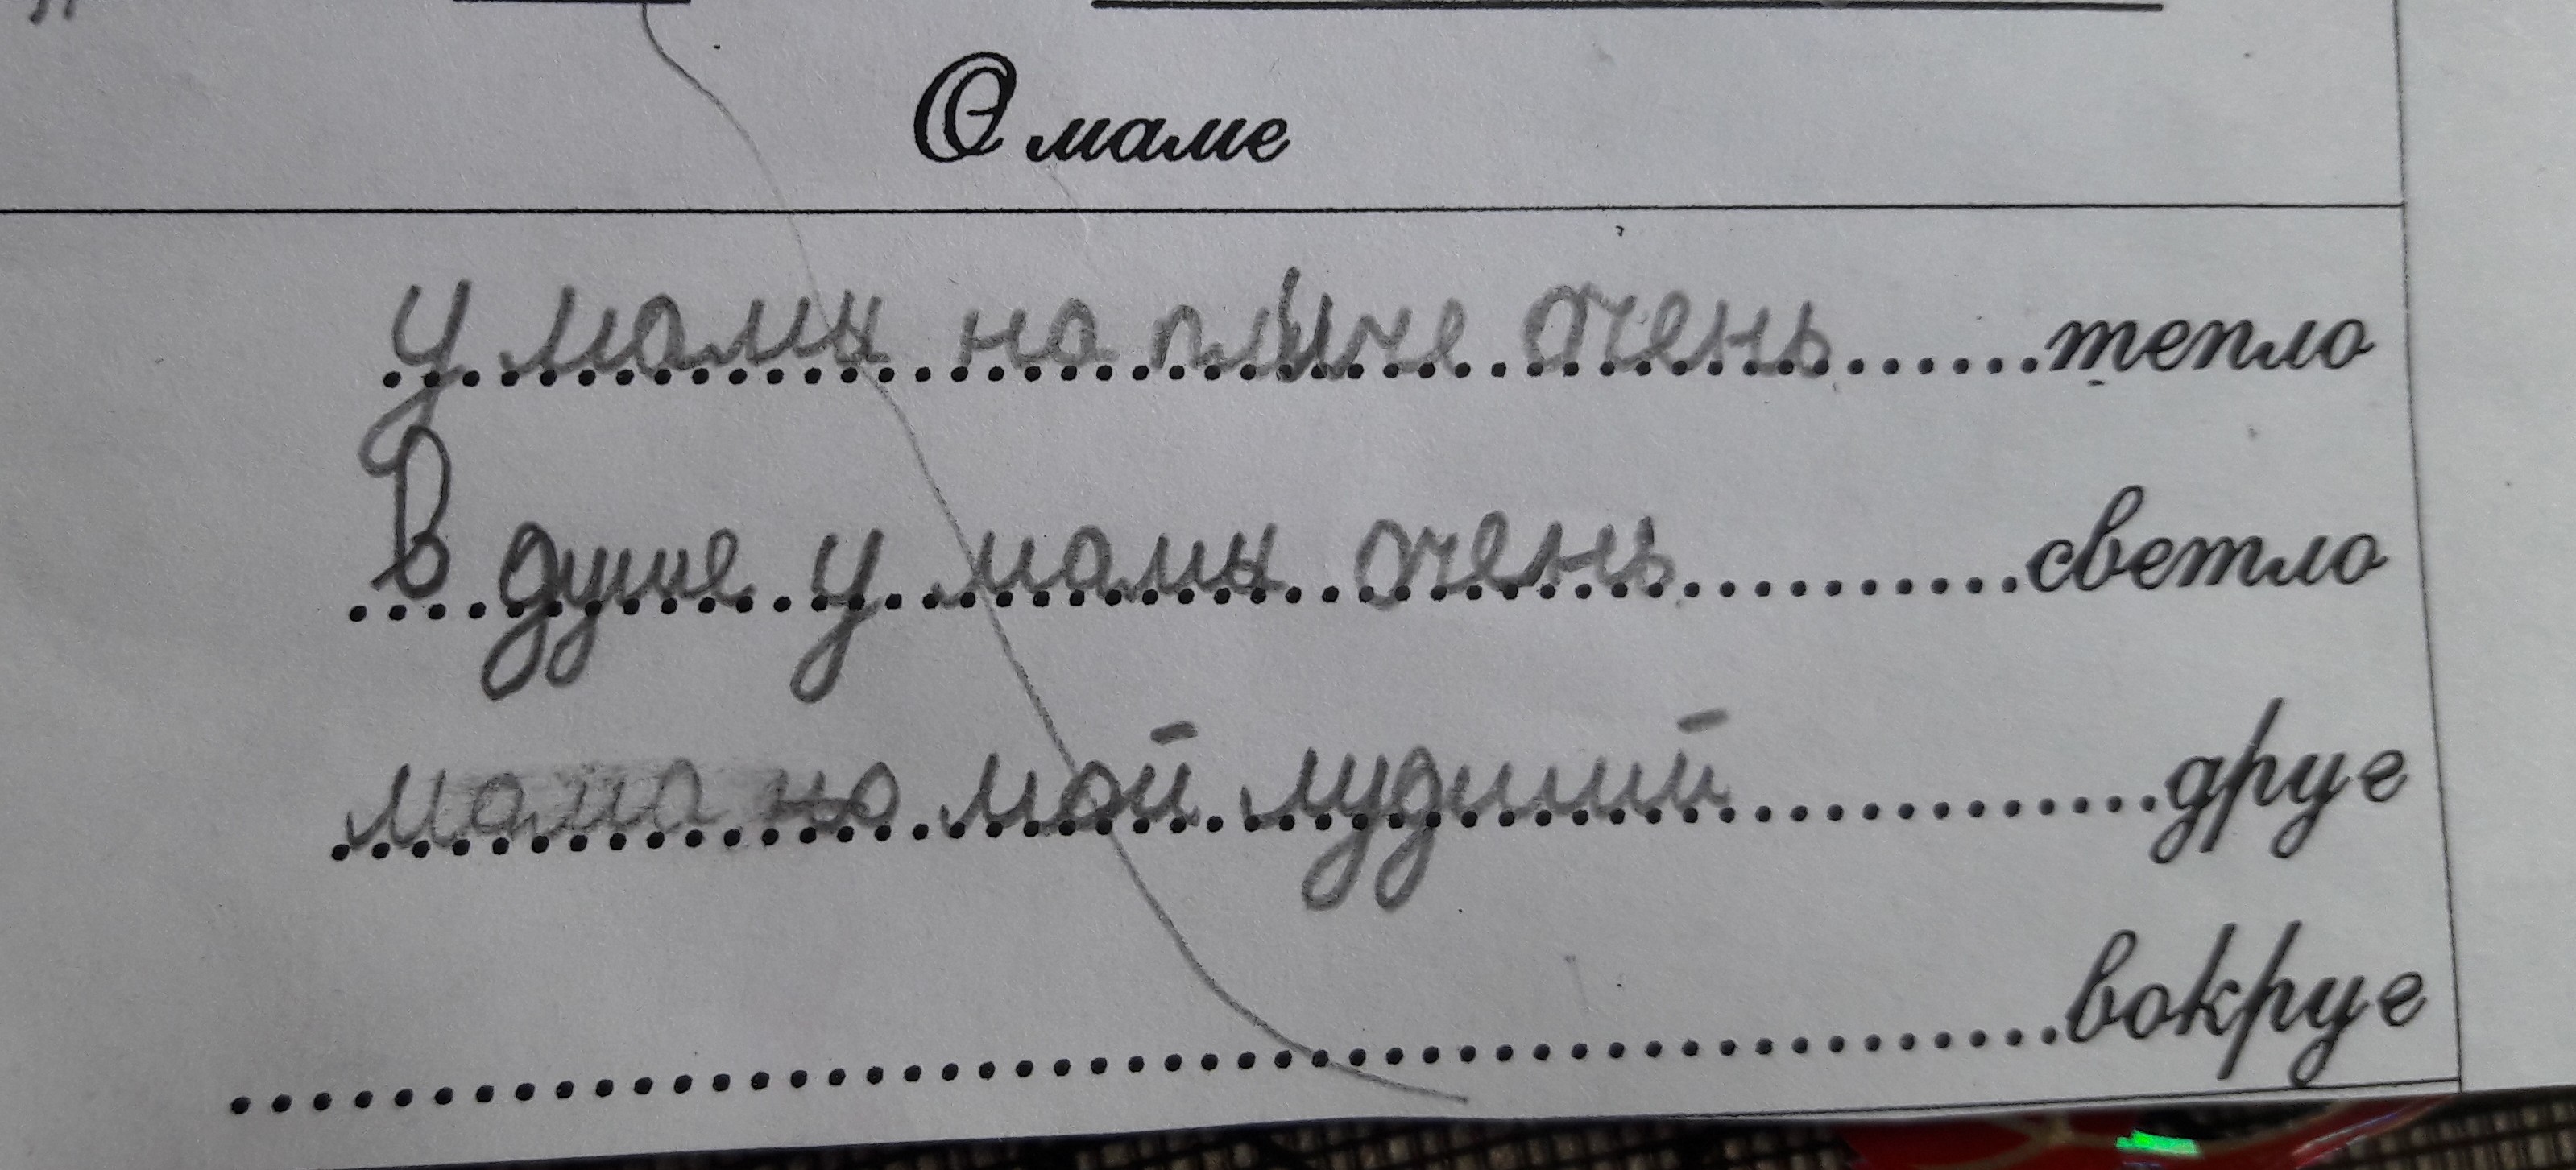 О маме
у мамы на плыче очень......тепло
В душе у мамы очень.........светло
мама но мой лудший...........друг
...............................................вокруг